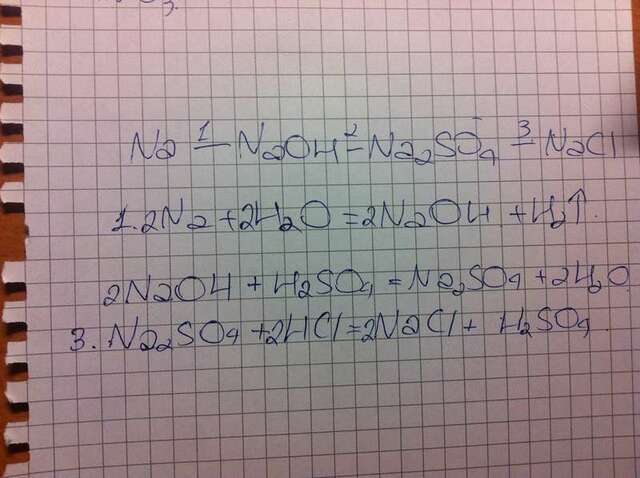 Na 1— NaOH 2— Na₂SO₄ 3— NaCl
1. 2Na + 2H₂O = 2NaOH + H₂↑
2NaOH + H₂SO₄ = Na₂SO₄ + 2H₂O
3. Na₂SO₄ + 2HCl = 2NaCl + H₂SO₄